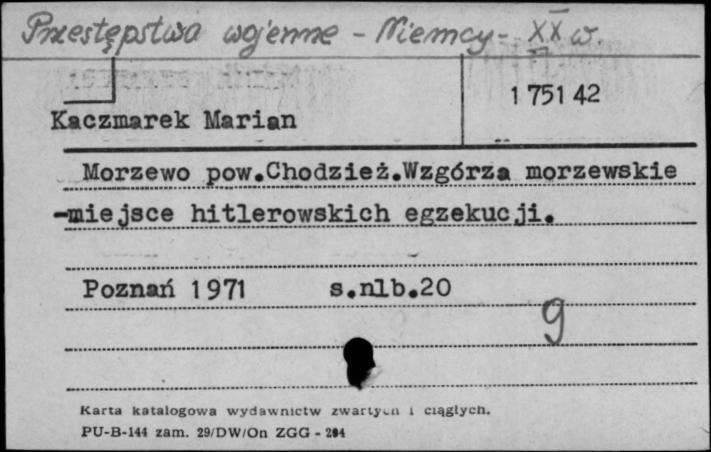 Przestępstwa wojenne - Niemcy - XX w.
1 751 42
Kaczmarek Marian
Morzewo pow.Chodzież.Wzgórza morzewskie
-miejsce hitlerowskich egzekucji.
Poznań 1971 s.nlb.20
g
Karta katalogowa wydawnictw zwartych i ciągłych.
PU-B-144 zam. 29/DW/On ZGG - 284